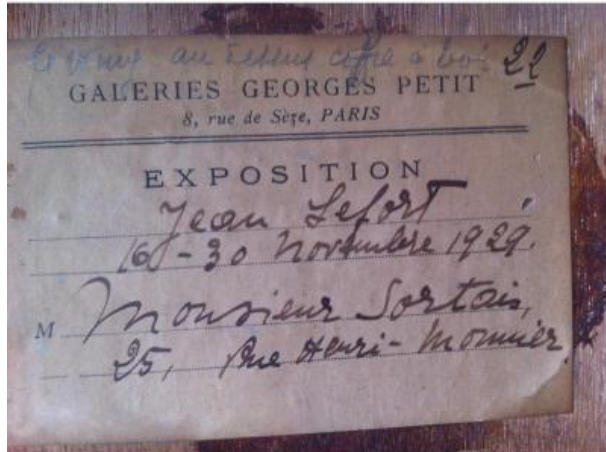 au dessus 22
GALERIES GEORGES PETIT
8, rue de Sèze, PARIS
EXPOSITION
Jean Lefort
16-30 Novembre 1929.
M Monsieur Sortais,
25, Rue Henri-Monnier,